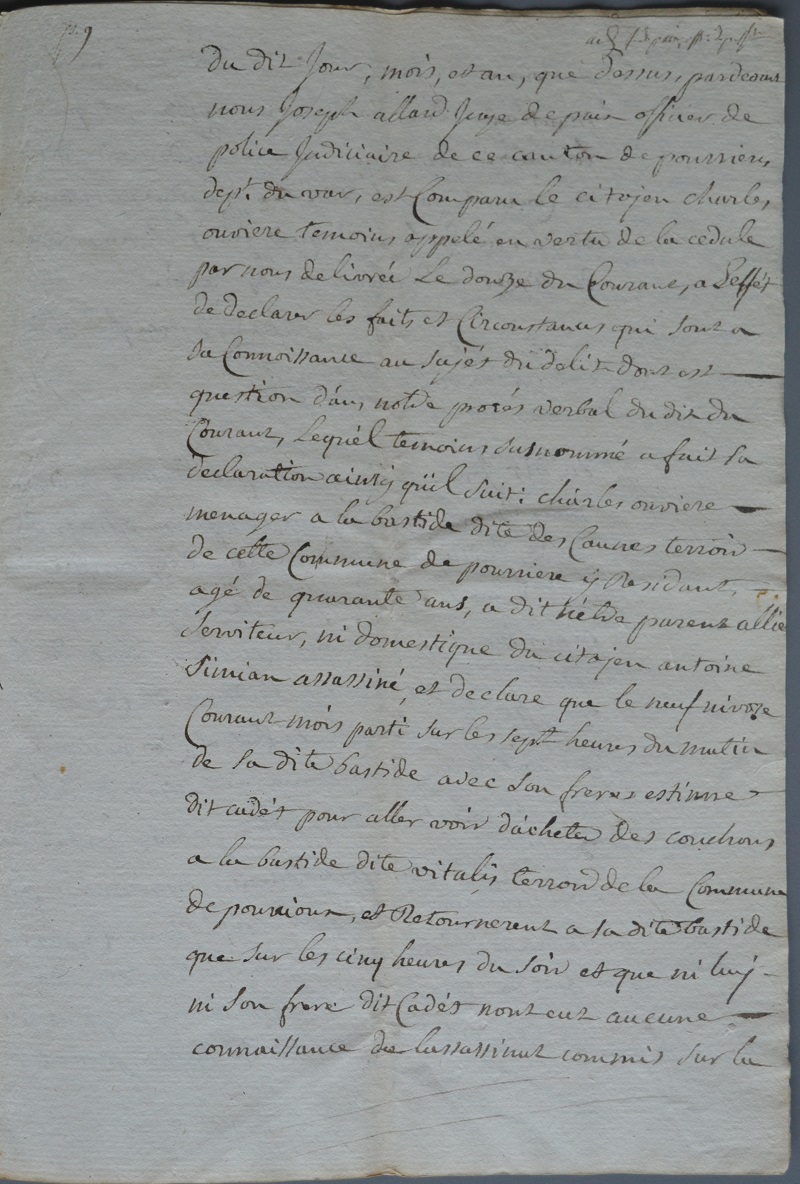 du dit Jour, mois, et an, que dessus, pardevant
nous Joseph allard Juge de paix officier de
police Judiciaire de ce canton de pourrieres
dept. du var, est Comparu le citoyen charles
ouviere temoins appelé en vertu de la cedule
par nous delivréé Le douze du Courant, a Leffét
de declarer les faits et Circonstances qui sont a
sa Connoissance au sujét du delit dont est
question dans notre procés verbal du dit du
Courant, Lequél temoins susnommé a fait sa
declaration ainsy qu'il suit: charles ouviere
menager a la bastide dite des Caunes terroir
de cette Commune de pourriere y Residant,
agé de quarante ans, a dit nétre parent allié
serviteur, ni domestique du citoyen antoine
Simian assassiné, et declare que le neuf nivose
Courant mois parti sur les sept heures du matin
de sa dite bastide avec son freres estinne
dit cadét pour aller voir d'acheter des couchons
a la bastide dite vitalis terroir de la Commune
de pourrious, et Retournerent a sa dite bastide
que sur les cinq heures du soir et que ni luy
ni son frere dit Cadét nont eut aucune
connaissance de lassassinat commis sur la